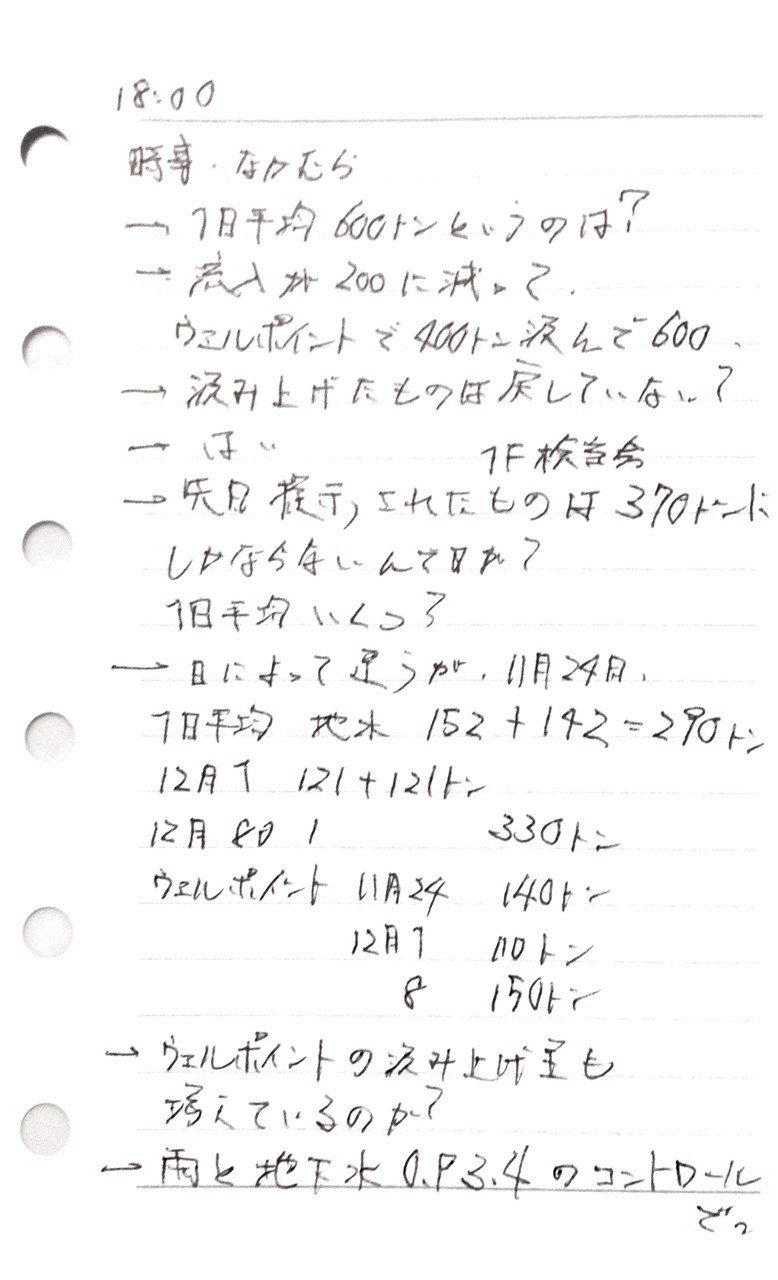 18:00
時事・なかむら
→ 1日平均600トンというのは?
→ 流入が200に減って、
ウェルポイントで400トン汲んで600.
→ 汲み上げたものは戻していない?
→ はい
1F検討会
→ 先日提示されたものは370トンに
しかならないんですが?
1日平均いくつ?
→ 日によって違うが、11月24日、
1日平均 地水 152+142=290トン
12月1 121+121トン
12月8日 1 330トン
ウェルポイント 11月24 140トン
12月1 110トン
8 150トン
→ ウェルポイントの汲み上げ量も
増えているのか?
→ 雨と地下水O.P3.4のコントロール
で